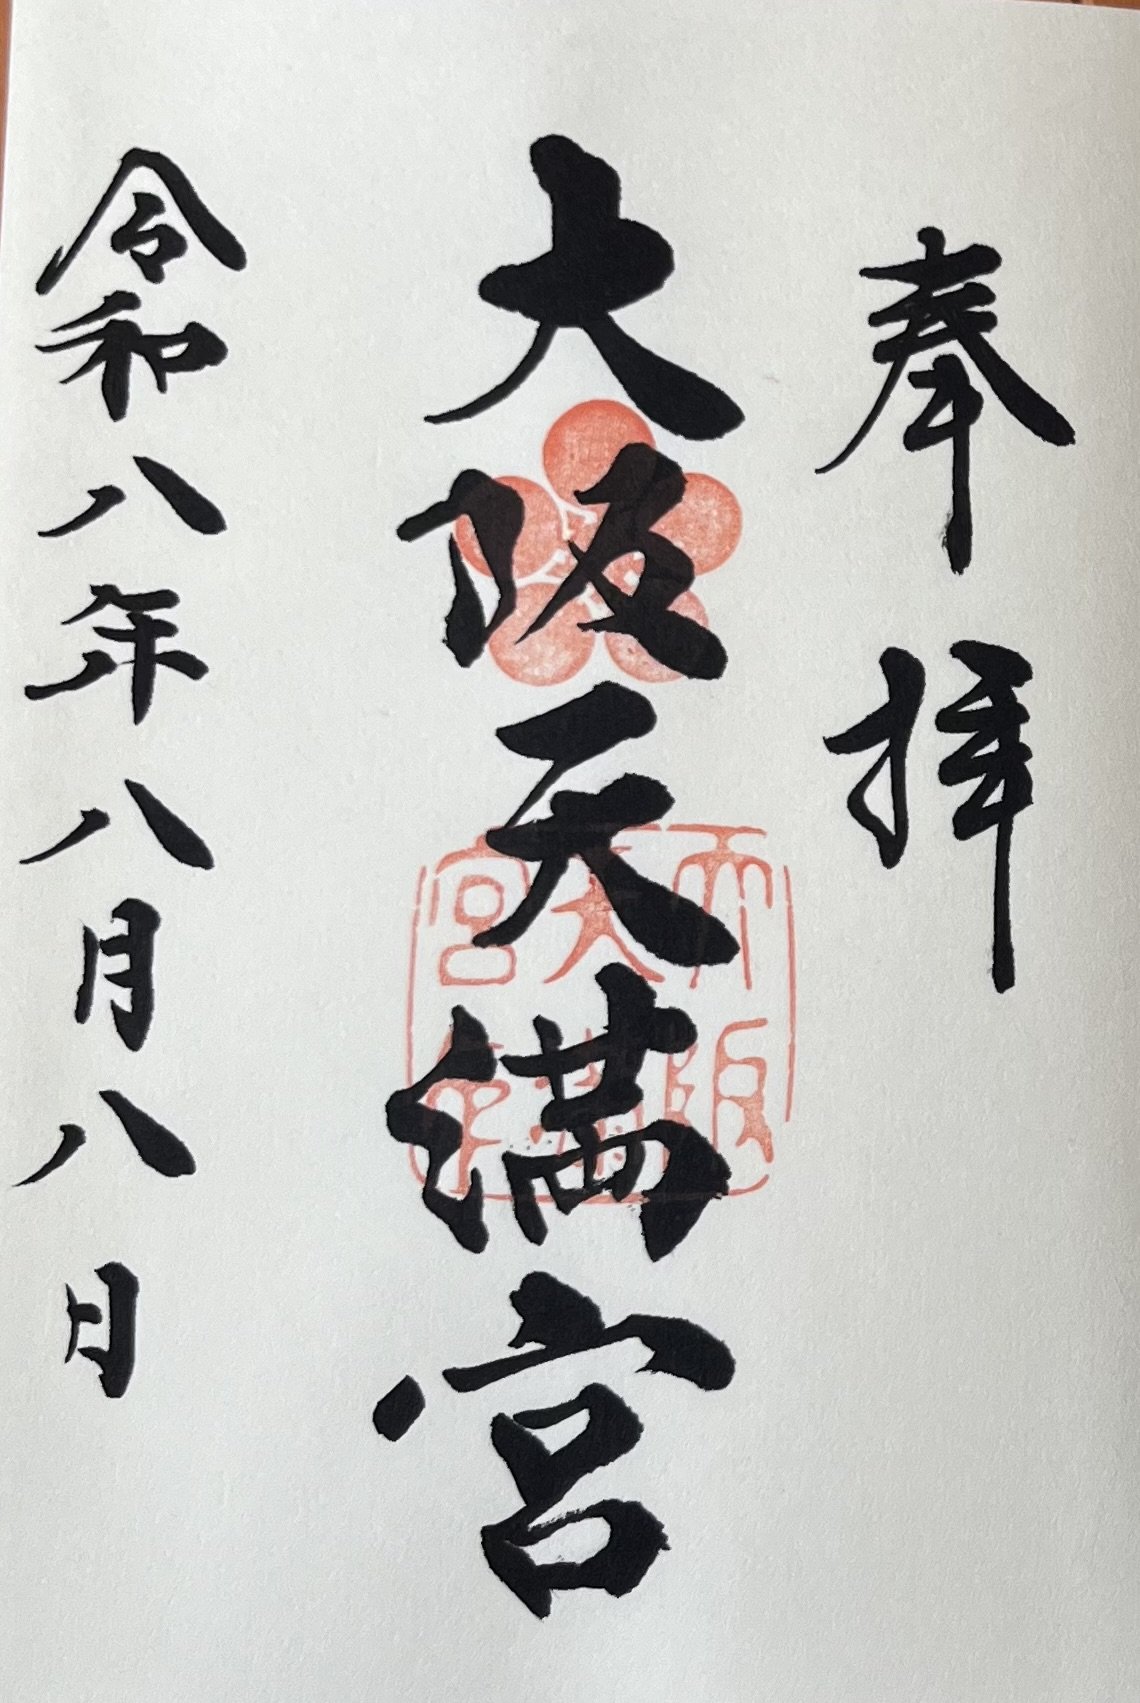 奉拝
大阪天満宮
令和八年八月八日
大阪
天満
宮